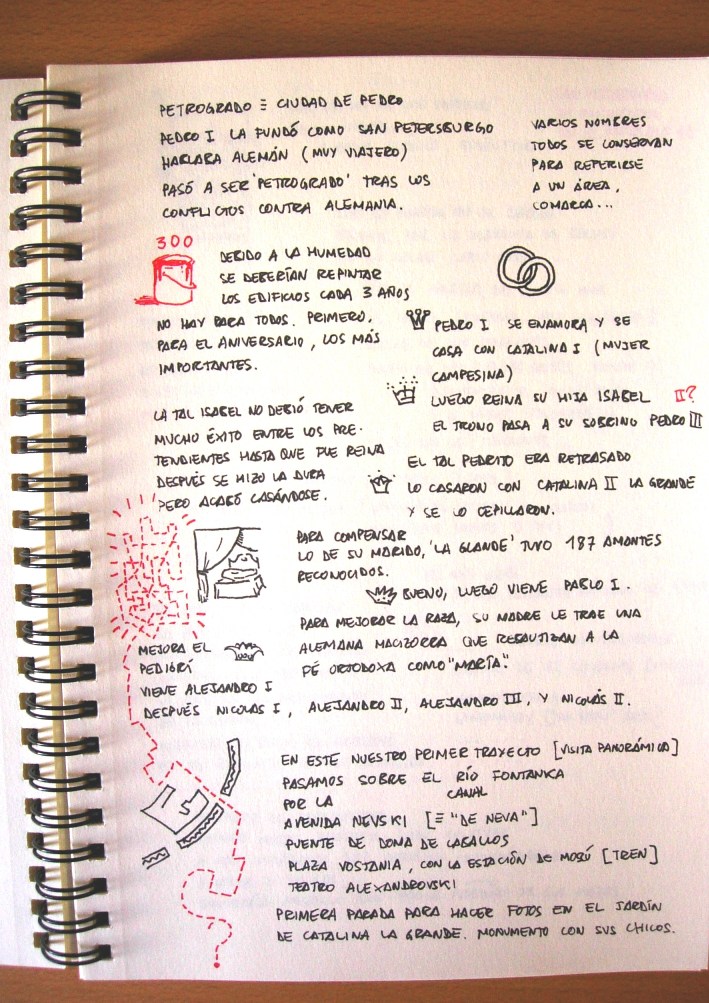 PETROGRADO ≡ CIUDAD DE PEDRO
PEDRO I LA FUNDÓ COMO SAN PETERSBURGO
HABLABA ALEMÁN (MUY VIAJERO)
PASÓ A SER 'PETROGRADO' TRAS LOS
CONFLICTOS CONTRA ALEMANIA.
VARIOS NOMBRES
TODOS SE CONSERVAN
PARA REFERIRSE
A UN ÁREA,
COMARCA...
300
DEBIDO A LA HUMEDAD
SE DEBERÍAN REPINTAR
LOS EDIFICIOS CADA 3 AÑOS
NO HAY PARA TODOS. PRIMERO,
PARA EL ANIVERSARIO, LOS MÁS
IMPORTANTES.
PEDRO I SE ENAMORA Y SE
CASA CON CATALINA I (MUJER
CAMPESINA)
LUEGO REINA SU HIJA ISABEL II?
EL TRONO PASA A SU SOBRINO PEDRO III
LA TAL ISABEL NO DEBIÓ TENER
MUCHO ÉXITO ENTRE LOS PRE-
TENDIENTES HASTA QUE FUE REINA
DESPUÉS SE HIZO LA DURA
PERO ACABÓ CASÁNDOSE.
EL TAL PEDRITO ERA RETRASADO
LO CASARON CON CATALINA II LA GRANDE
Y SE LO CEPILLARON.
PARA COMPENSAR
LO DE SU MARIDO, 'LA GLANDE' TUVO 187 AMANTES
RECONOCIDOS.
BUENO, LUEGO VIENE PABLO I.
PARA MEJORAR LA RAZA, SU MADRE LE TRAE UNA
ALEMANA MACIZORRA QUE REBAUTIZAN A LA
FÉ ORTODOXA COMO "MARÍA".
MEJORA EL
PEDIGRÍ
VIENE ALEJANDRO I
DESPUÉS NICOLÁS I, ALEJANDRO II, ALEJANDRO III, Y NICOLÁS II.
EN ESTE NUESTRO PRIMER TRAYECTO [VISITA PANORÁMICA]
PASAMOS SOBRE EL RÍO FONTANKA
CANAL
POR LA
AVENIDA NEVSKI [≡ "DE NEVA"]
PUENTE DE DOMA DE CABALLOS
PLAZA VOSTANIA, CON LA ESTACIÓN DE MOSÚ [TREN]
TEATRO ALEXANDROVSKI
PRIMERA PARADA PARA HACER FOTOS EN EL JARDÍN
DE CATALINA LA GRANDE. MONUMENTO CON SUS CHICOS.